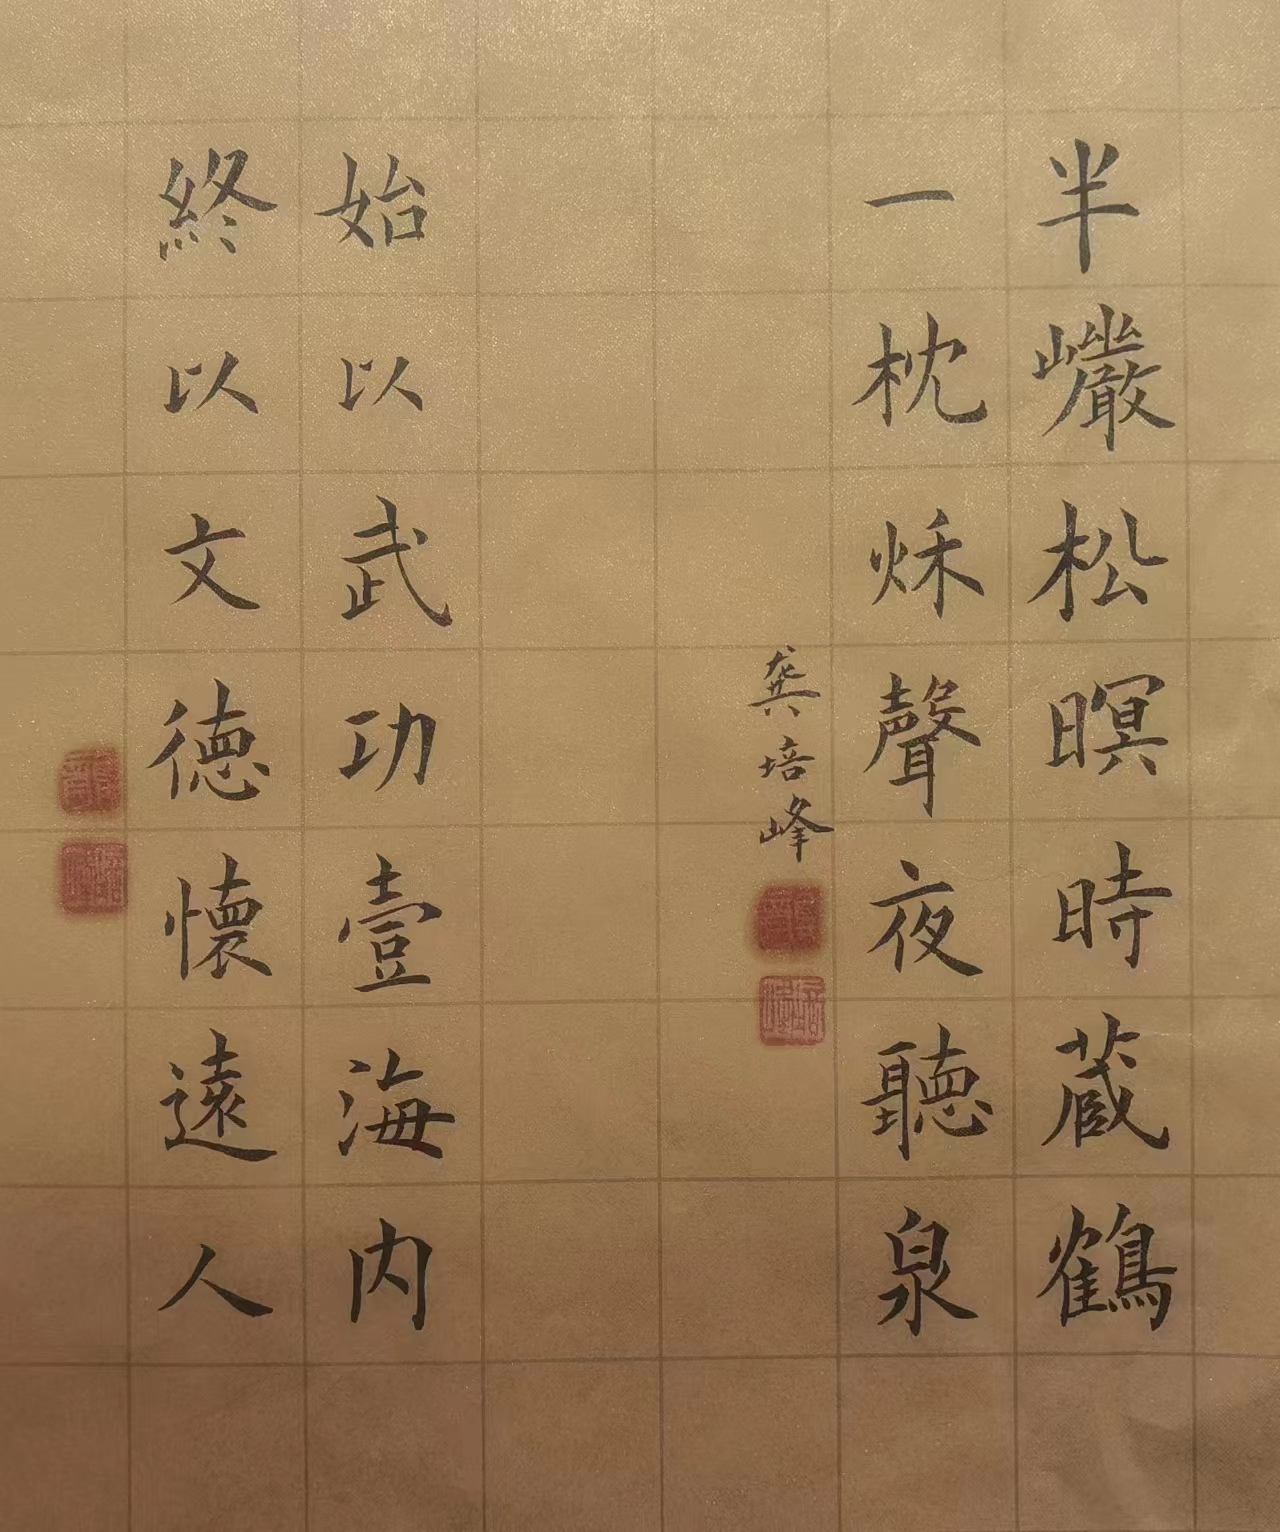 半巖松暝時蔵鶴
一枕秌聲夜聽泉
龚培峰
始以武功壹海内
終以文德懷遠人